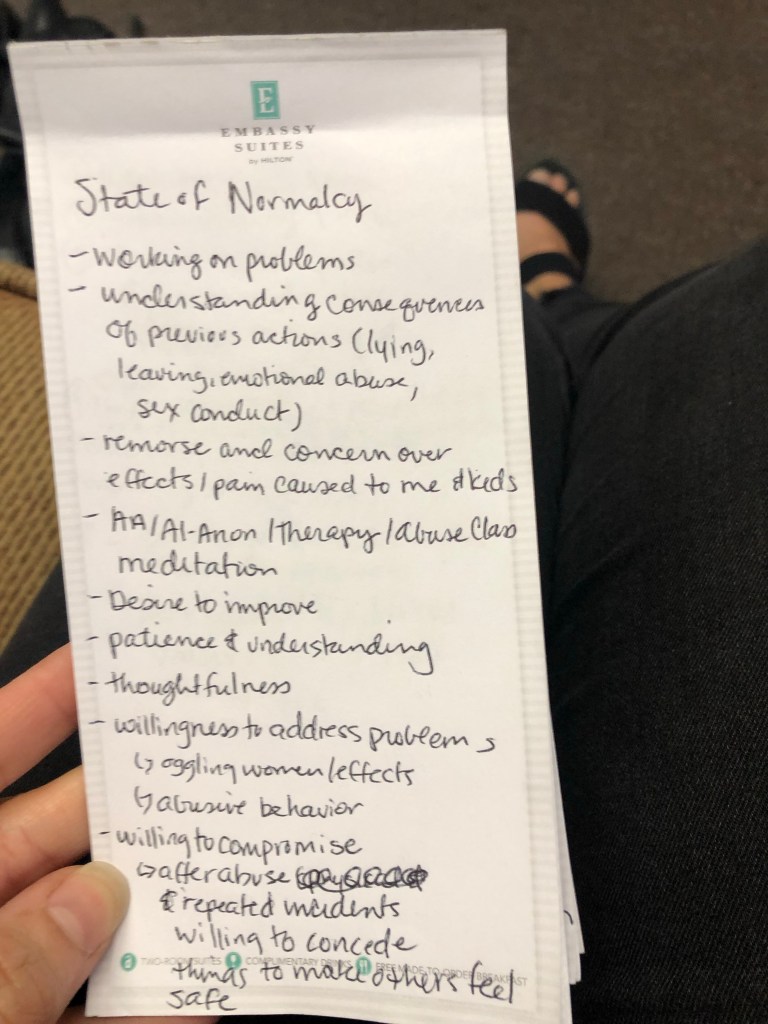 E
EMBASSY
SUITES
by HILTON
State of Normalcy
- working on problems
- understanding consequences
of previous actions (lying,
leaving, emotional abuse,
sex conduct)
- remorse and concern over
effects/pain caused to me & kids
- AA/Al-Anon/Therapy/Abuse Class
meditation
- Desire to improve
- patience & understanding
- thoughtfulness
- willingness to address problems
↳ oggling women/effects
↳ abusive behavior
- willing to compromise
↳ after abuse
& repeated incidents
willing to concede
things to make others feel
safe
TWO-ROOM SUITES COMPLIMENTARY DRINKS FREE MADE-TO-ORDER BREAKFAST